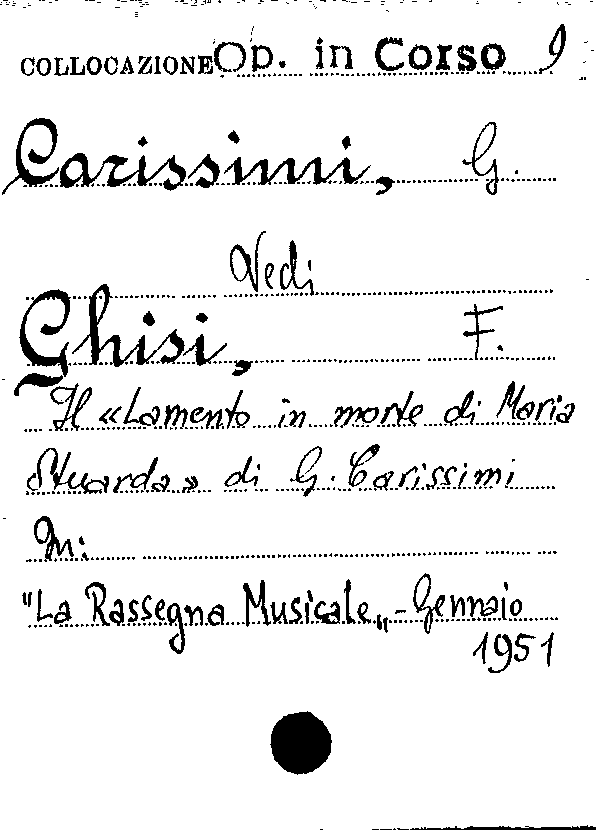 COLLOCAZIONE Op. in Corso 9
Carissimi, G.
Vedi
Ghisi, F.
Il «Lamento in morte di Maria
Stuarda» di G. Carissimi
In:
"La Rassegna Musicale„ - Gennaio
1951